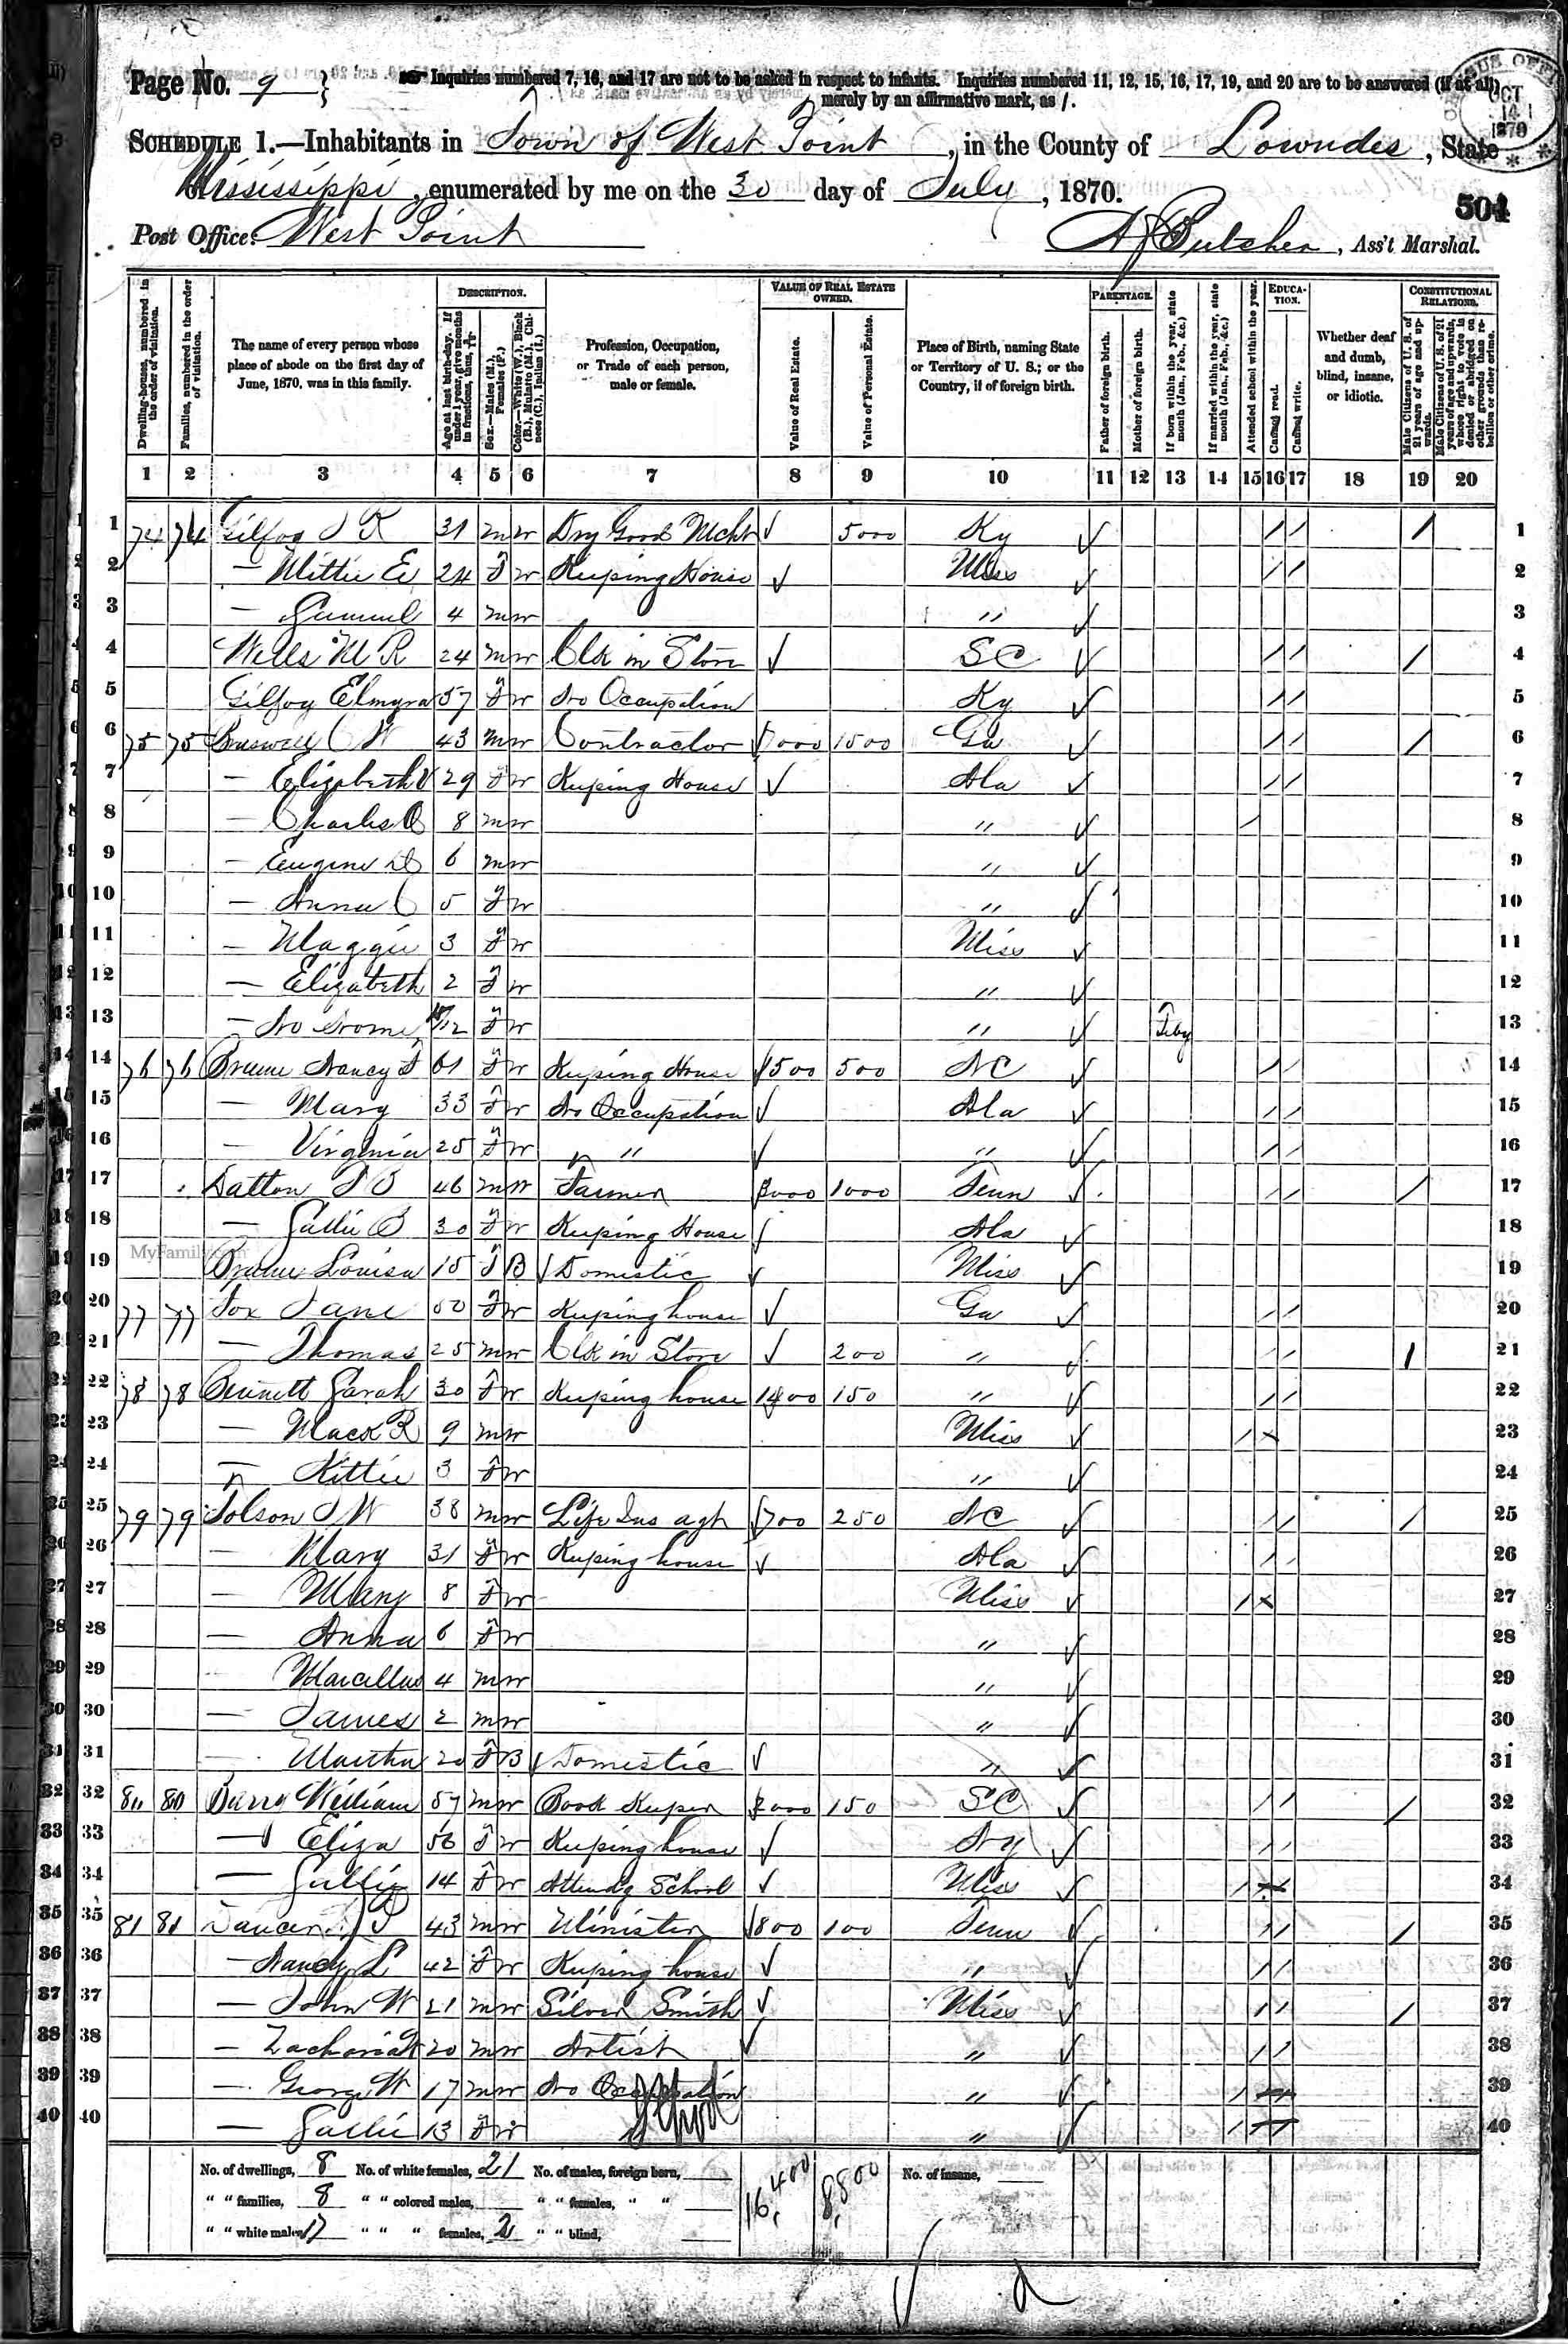 Page No. 9
Inquiries numbered 7, 16, and 17 are not to be asked in respect to infants. Inquiries numbered 11, 12, 15, 16, 17, 19, and 20 are to be answered (if at all)
merely by an affirmative mark, as /.
OCT 14 1870
SCHEDULE 1.—Inhabitants in Town of West Point, in the County of Lowndes, State
of Mississippi, enumerated by me on the 30 day of July, 1870.
504
Post Office: West Point
A J Butcher, Ass't Marshal.
DESCRIPTION. VALUE OF REAL ESTATE OWNED. PARENTAGE. EDUCATION. CONSTITUTIONAL RELATIONS.
Dwelling-houses, numbered in the order of visitation.
Families, numbered in the order of visitation.
The name of every person whose place of abode on the first day of June, 1870, was in this family.
Age at last birth-day. If under 1 year, give months in fractions, thus, 3/12
Sex.—Males (M.), Females (F.)
Color.—White (W.), Black (B.), Mulatto (M.), Chinese (C.), Indian (I.)
Profession, Occupation, or Trade of each person, male or female.
Value of Real Estate.
Value of Personal Estate.
Place of Birth, naming State or Territory of U. S.; or the Country, if of foreign birth.
Father of foreign birth.
Mother of foreign birth.
If born within the year, state month (Jan., Feb., &c.)
If married within the year, state month (Jan., Feb., &c.)
Attended school within the year.
Cannot read.
Cannot write.
Whether deaf and dumb, blind, insane, or idiotic.
Male Citizens of U. S. of 21 years of age and upwards.
Male Citizens of U. S. of 21 years of age and upwards, whose right to vote is denied or abridged on other grounds than rebellion or other crime.
1 2 3 4 5 6 7 8 9 10 11 12 13 14 15 16 17 18 19 20
1 74 74 Gilfoy J R 31 m w Dry Good Mcht 5000 Ky 1
2 — Mittie E 24 F w Keeping House Miss 2
3 — Samuel 4 m w " 3
4 Wells M R 24 m w Clk in Store SC 4
5 Gilfoy Elmyra 57 F w No Occupation Ky 5
6 75 75 Braswell C W 43 m w Contractor 7000 1500 Ga 6
7 — Elizabeth V 29 F w Keeping House Ala 7
8 — Charles O 8 m w " 8
9 — Eugene D 6 m w " 9
10 — Anna C 5 F w " 10
11 — Maggie 3 F w Miss 11
12 — Elizabeth 2 F w " 12
13 — No Name /12 F w " Feby 13
14 76 76 Brame Nancy F 61 F w Keeping House 1500 500 NC 14
15 — Mary 33 F w No Occupation Ala 15
16 — Virginia 25 F w " " " 16
17 Datton J B 46 m w Farmer 3000 1000 Tenn 17
18 — Sallie B 30 F w Keeping House Ala 18
MyFamily.com
19 Brame Louisa 15 F B Domestic Miss 19
20 77 77 Fox Jane 50 F w Keeping house Ga 20
21 — Thomas 25 m w Clk in Store 200 " 21
22 78 78 Bennett Sarah 30 F w Keeping house 1400 150 " 22
23 — Mack R 9 m w Miss 23
24 — Kittie 3 F w " 24
25 79 79 Tolson J W 38 m w Life Ins agt 700 250 NC 25
26 — Mary 31 F w Keeping house Ala 26
27 — Mary 8 F w Miss 27
28 — Anna 6 F w " 28
29 — Marcellus 4 m w " 29
30 — James 2 m w " 30
31 — Martha 20 F B Domestic " 31
32 80 80 Barry William 57 m w Book Keeper 2000 150 SC 32
33 — Eliza 56 F w Keeping house NY 33
34 — Sallie 14 F w Attendg School Miss 34
35 81 81 43 m w Minister 800 100 Tenn 35
36 — Nancy L 42 F w Keeping house " 36
37 — John W 21 m w Silver Smith Miss 37
38 — 20 m w Artist " 38
39 — George W 17 m w No Occupation " 39
40 — Sallie 13 F w School " 40
No. of dwellings, 8 No. of white females, 21 No. of males, foreign born, 16,400 8,800 No. of insane,
" " families, 8 " " colored males, " " females, " "
" " white males, 17 " " " females, 2 " " blind,